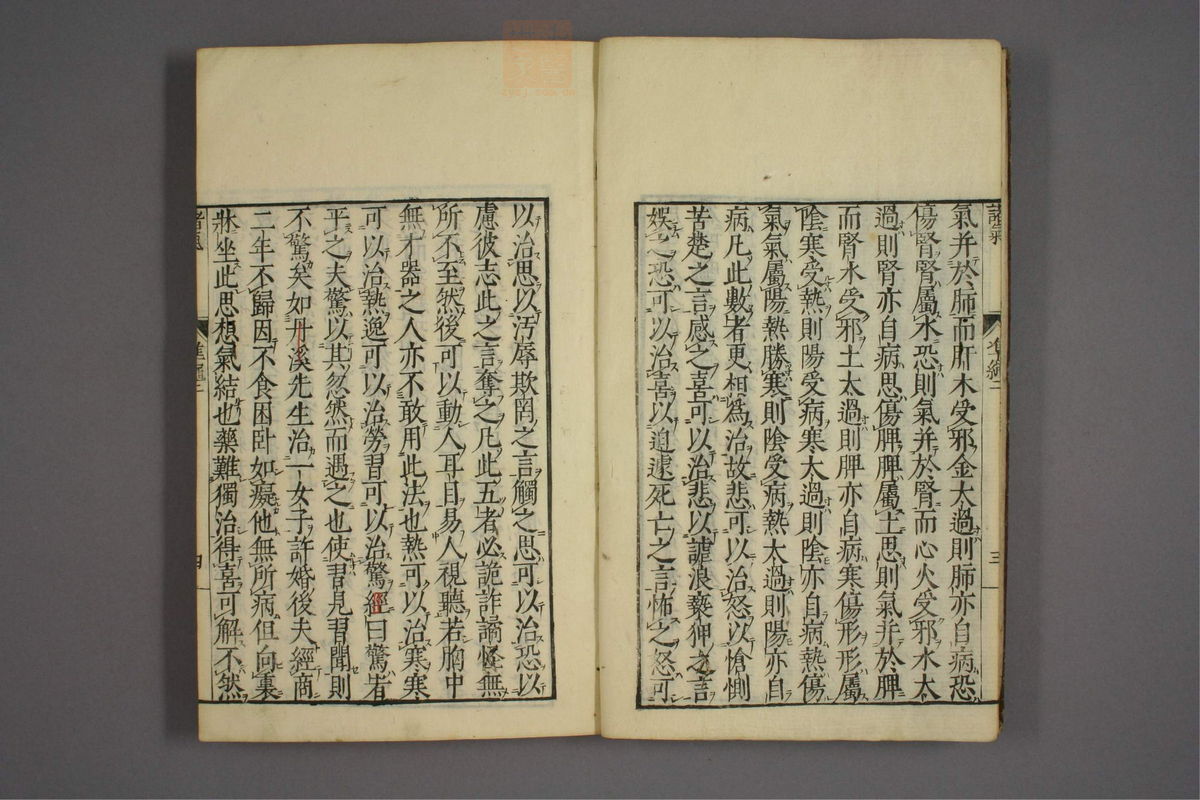 氣并於肺而肝木受邪金太過則肺亦自病恐
傷腎腎屬水恐則氣并於腎而心火受邪水太
過則腎亦自病思傷脾脾屬土思則氣并於脾
而腎水受邪土太過則脾亦自病寒傷形形屬
陰寒受熱則陽受病寒太過則陰亦自病熱傷
氣氣屬陽熱勝寒則陰受病熱太過則陽亦自
病凡此數者更相爲治故悲可以治怒以愴惻
苦楚之言感之喜可以治悲以謔浪褻狎之言
娛之恐可以治喜以迫遽死亡之言怖之怒可
三
以治思以汚辱欺罔之言觸之思可以治恐以
慮彼志此之言奪之凡此五者必詭詐譎怪無
所不至然後可以動人耳目易人視聽若胸中
無才器之人亦不敢用此法也熱可以治寒寒
可以治熱逸可以治勞習可以治驚經曰驚者
平之夫驚以其忽然而遇之也使習見習聞則
不驚矣如丹溪先生治一女子許婚後夫經商
二年不歸因不食困卧如癡他無所病但向裏
牀坐此思想氣結也藥難獨治得喜可解不然
四